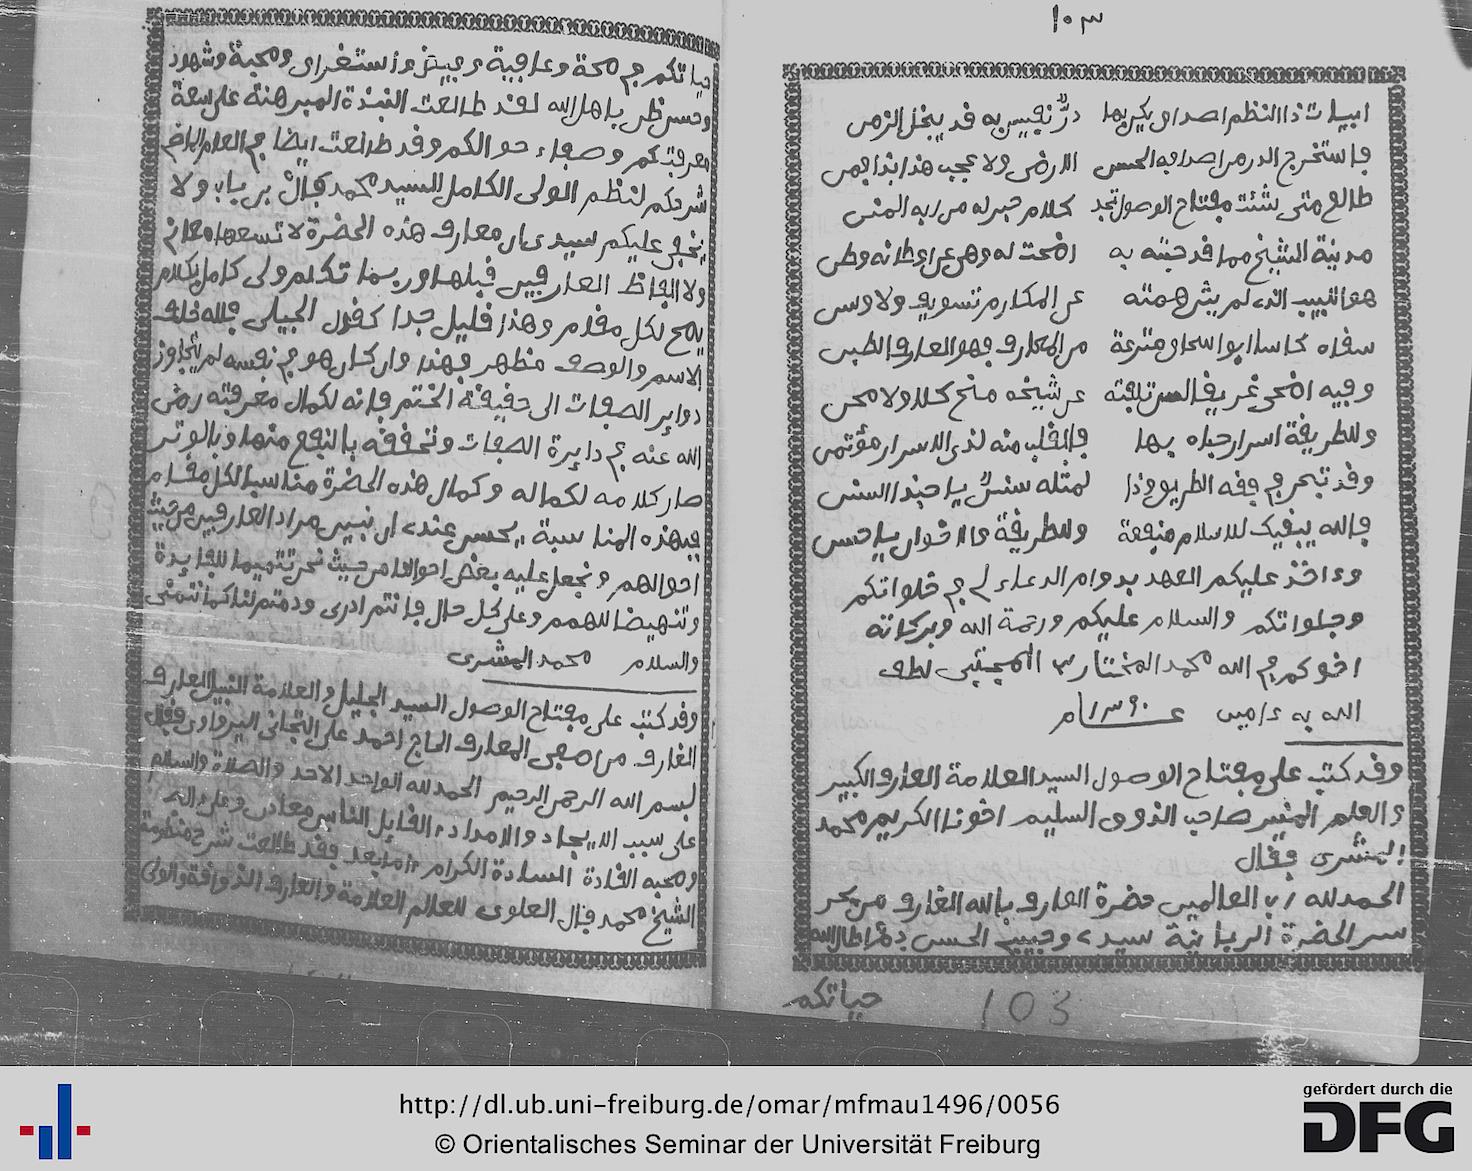 ١٠٣
ابيات ذا النظم اصداف يكن بها در نفيس به قد يبخل الزمن
فاستخرج الدر من اصدافه الحسن الارضى ولا عجب هذا بذا قمن
طالع متى شئت مفتاح الوصول تجد كلام حبر له من ربه المنن
مدنية الشيخ مما قد حبته به اضحت له وهي عن اوطانه وطن
هو اللبيب الذي لم يثن همته عن المكارم تسويف ولا وسن
سقاه كاسا ابو اسحاق مترعة من المعارف فهو العارف الطبن
وفيه اضحى غريق السر تلفته عن شيخه منح كلا ولا محن
وللطريقة اسرار حباه بها فالقلب منه لذي الاسرار مؤتمن
وقد تبحر في فقه الطريق وذا لمثله سنن يا حبذا السنن
فالله يبقيك للاسلام منفعة وللطريقة والاخوان يا حسن
وءاخذ عليكم العهد بدوام الدعاء لي في خلواتكم
وجلواتكم والسلام عليكم ورحمة الله وبركاته
اخوكم في الله محمد المختار المجتبى لطف
الله به ءامين ١٣٩٠
وقد كتب على مفتاح الوصول السيد العلامة العارف الكبير
والعلم المنير صاحب الذوق السليم اخونا الكريم محمد
المشرى فقال
الحمد لله رب العالمين حضرة العارف بالله الغارف من بحر
سر الحضرة الربانية سيدي وحبيبي الحسن دم اطال الله
حياتكم
103
حياتكم في صحة وعافية واستغراق ومحبة وشهود
وحسن ظن باهل الله لقد طالعت النبذة المبرهنة على سعة
معرفتكم وصفاء احوالكم وقد طالعت ايضا في العام
شرحكم لنظم الولى الكامل السيد محمد فال بن باب ولا
يخفى عليكم سيدي ان معارف هذه الحضرة لا تسعها معان
ولا الفاظ العارفين قبلها وربما تكلم ولى كامل بكلام
يصح لكل مقام وهذا قليل جدا كقول الجيلى
الاسم والوصف مظهر فهذا وان كان هو في نفسه لم يتجاوز
دواير الصفات الى حقيقة الختم فانه لكمال معرفته رضى
الله عنه في دايرة الصفات وتحققه بالشفع منها وبالوتر
صار كلامه لكماله وكمال هذه الحضرة مناسبا لكل مقام
فبهذه المناسبة يحسن عندي ان نبين مراد العارفين من حيث
احوالهم ونجعل عليه بعض احوالنا من حيث نحن تتميما للفايدة
وتنهيضا للهمم وعلى كل حال فانتم ادرى ودمتم لنا كما نتمنى
والسلام محمد المشرى
وقد كتب على مفتاح الوصول السيد الجليل والعلامة النبيل العارف
الغارف من اصفى المعارف الحاج احمد على التجانى فقال
بسم الله الرحمن الرحيم الحمد لله الواحد الاحد والصلاة والسلام
على سبب الايجاد والامداد القايل الناس معادن وعلى اله
وصحبه القادة السادة الكرام اما بعد فقد طالعت شرح منظومة
الشيخ محمد فال العلوى للعالم العلامة والعارف الذواقة والولى
http://dl.ub.uni-freiburg.de/omar/mfmau1496/0056
© Orientalisches Seminar der Universität Freiburg
gefördert durch die
DFG